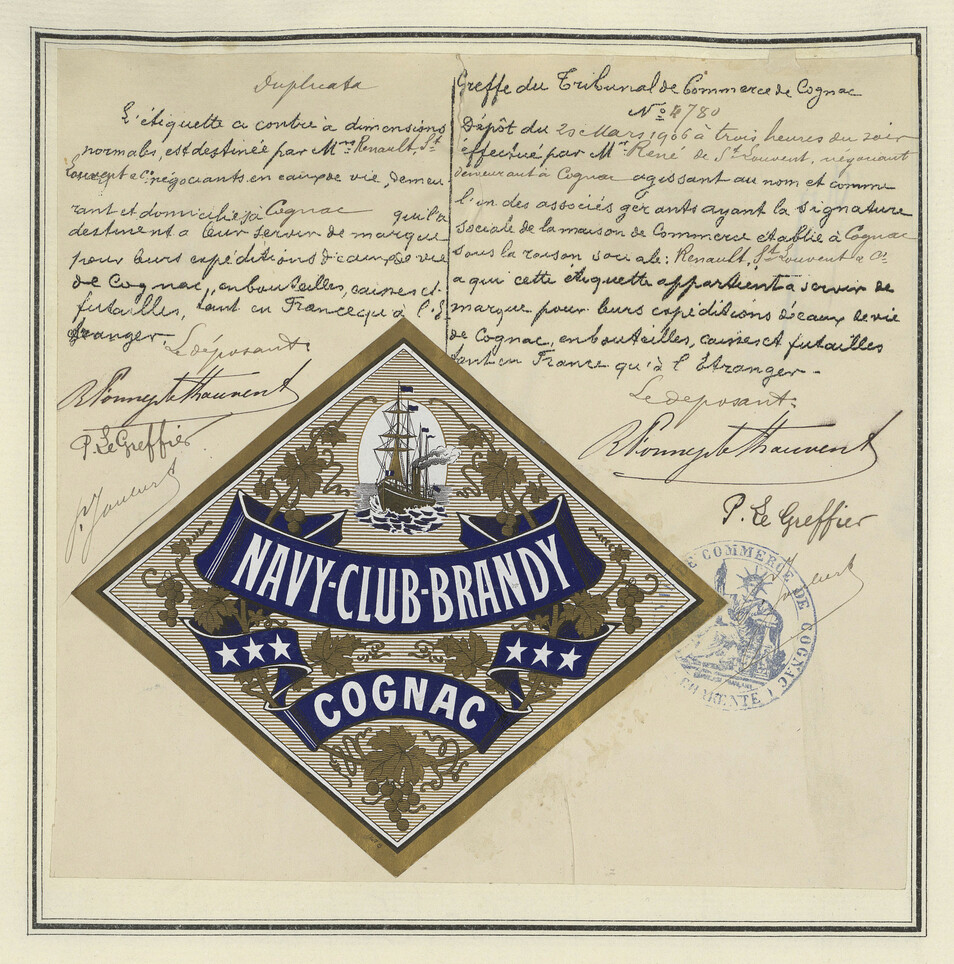 Duplicata
L'étiquette ci contre à dimensions
normales, est destinée par M.rs Renault, St
Louvent & Cie négociants en eaux de vie, demeu
rant et domiciliés à Cognac qui la
destinent à leur servir de marque
pour leurs expéditions d'eaux de vie
de Cognac, en bouteilles, caisses et
futailles, tant en France qu'à l'É
tranger.
Le déposant
P. Le Greffier
Greffe du Tribunal de Commerce de Cognac
No 4780
Dépôt du 20 Mars 1906 à trois heures du soir
effectué par Mr. René de St Louvent, négociant
demeurant à Cognac agissant au nom et comme
l'un des associés gérants ayant la signature
sociale de la maison de Commerce établie à Cognac
sous la raison sociale: Renault, St Louvent & Cie
a qui cette étiquette appartient à servir de
marque pour leurs expéditions d'eaux de vie
de Cognac, en bouteilles, caisses et futailles
tant en France qu'à l'Étranger -
Le déposant
P. Le Greffier
NAVY-CLUB-BRANDY
COGNAC
DE COMMERCE DE COGNAC
CHARENTE